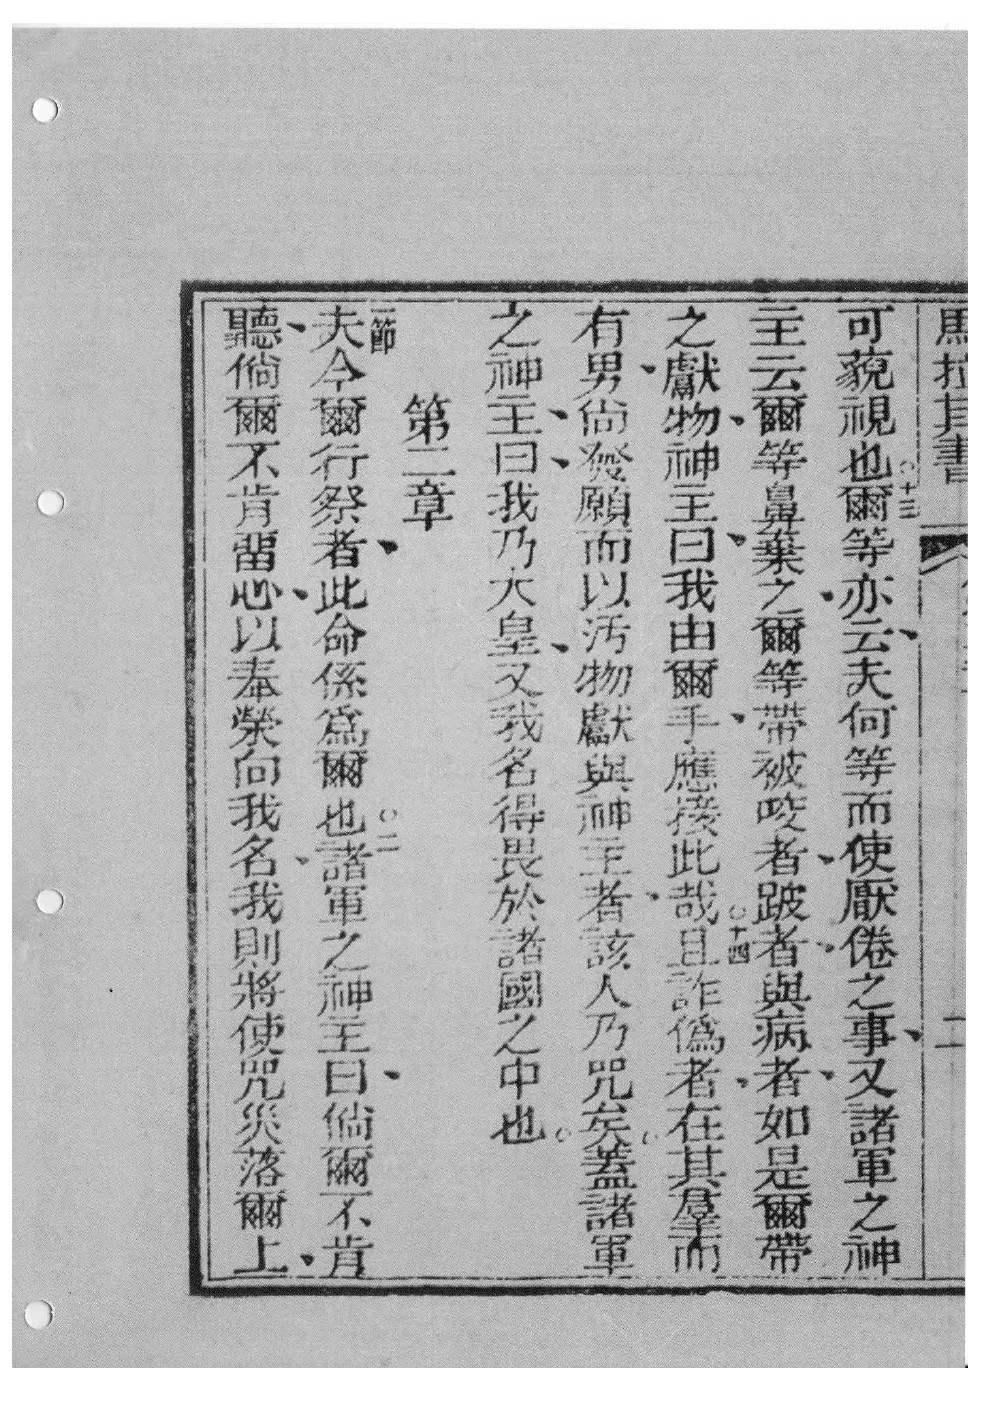 馬拉其書
二
可藐視也○十三爾等亦云夫何等而使厭倦之事又諸軍之神
主云爾等鼻棄之爾等帶被咬者跛者與病者如是爾帶
之獻物神主曰我由爾手應接此哉○十四且詐僞者在其羣而
有男尙發願而以污物獻與神主者該人乃咒矣蓋諸軍
之神主曰我乃大皇又我名得畏於諸國之中也○
第二章
一節夫今爾行祭者此命係爲爾也○二諸軍之神主曰倘爾不肯
聽倘爾不肯畱心以奉榮向我名我則將使咒災落爾上